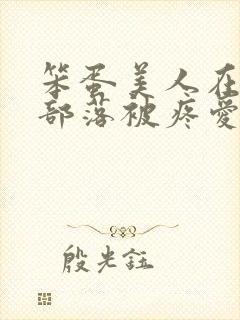 笨蛋美人在
部落被疼爱
殷光鈺